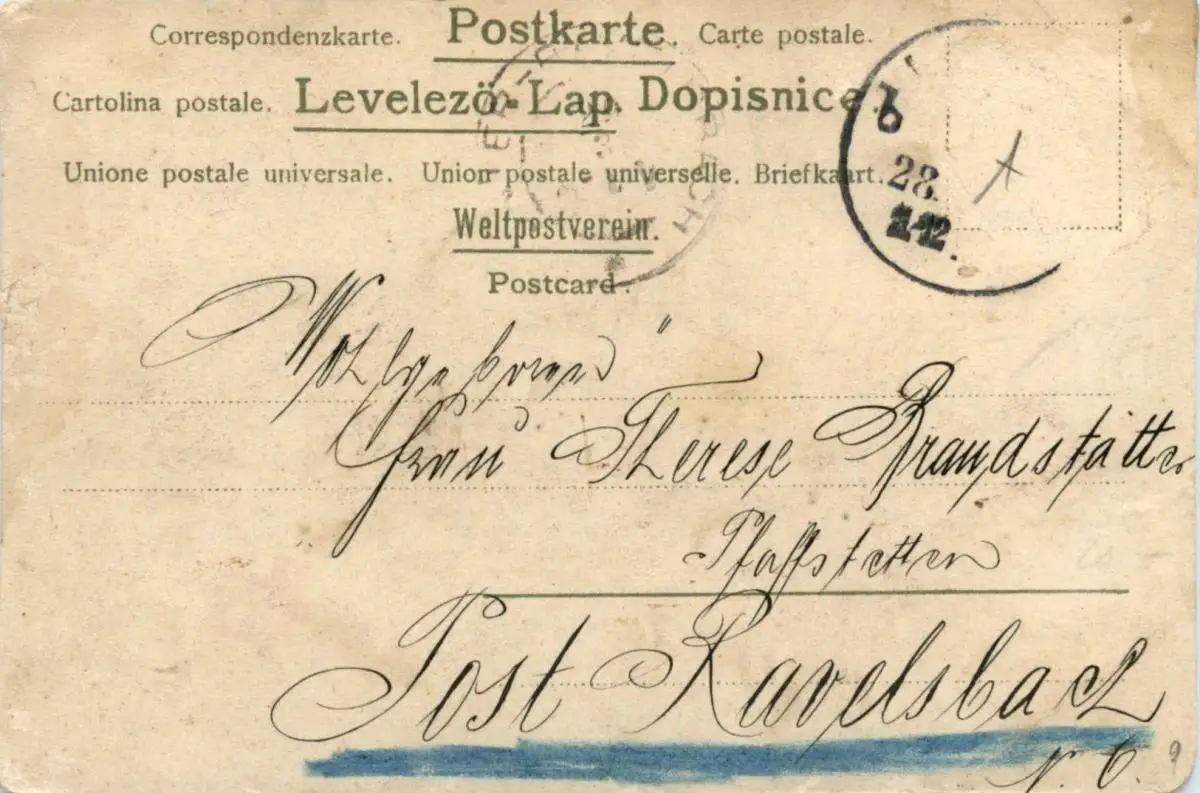 Correspondenzkarte. Postkarte. Carte postale.
Cartolina postale. Levelező-Lap. Dopisnice.
Unione postale universale. Union postale universelle. Briefkaart.
Weltpostverein.
Postcard.
b
28.
12
Wohlgeboren
Frau Therese Brandstätter
Pfaffstetten
Post Ravelsbach
N. Ö.
9